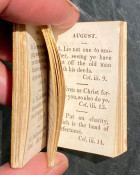 AUGUST.
1. Lie not one to ano-
ther, seeing ye have
off the old man
his deeds.
Col. iii. 9.
as Christ for-
you, so also do ye.
Col. iii. 13.
Put on charity,
is the bond of
Col. iii. 14.